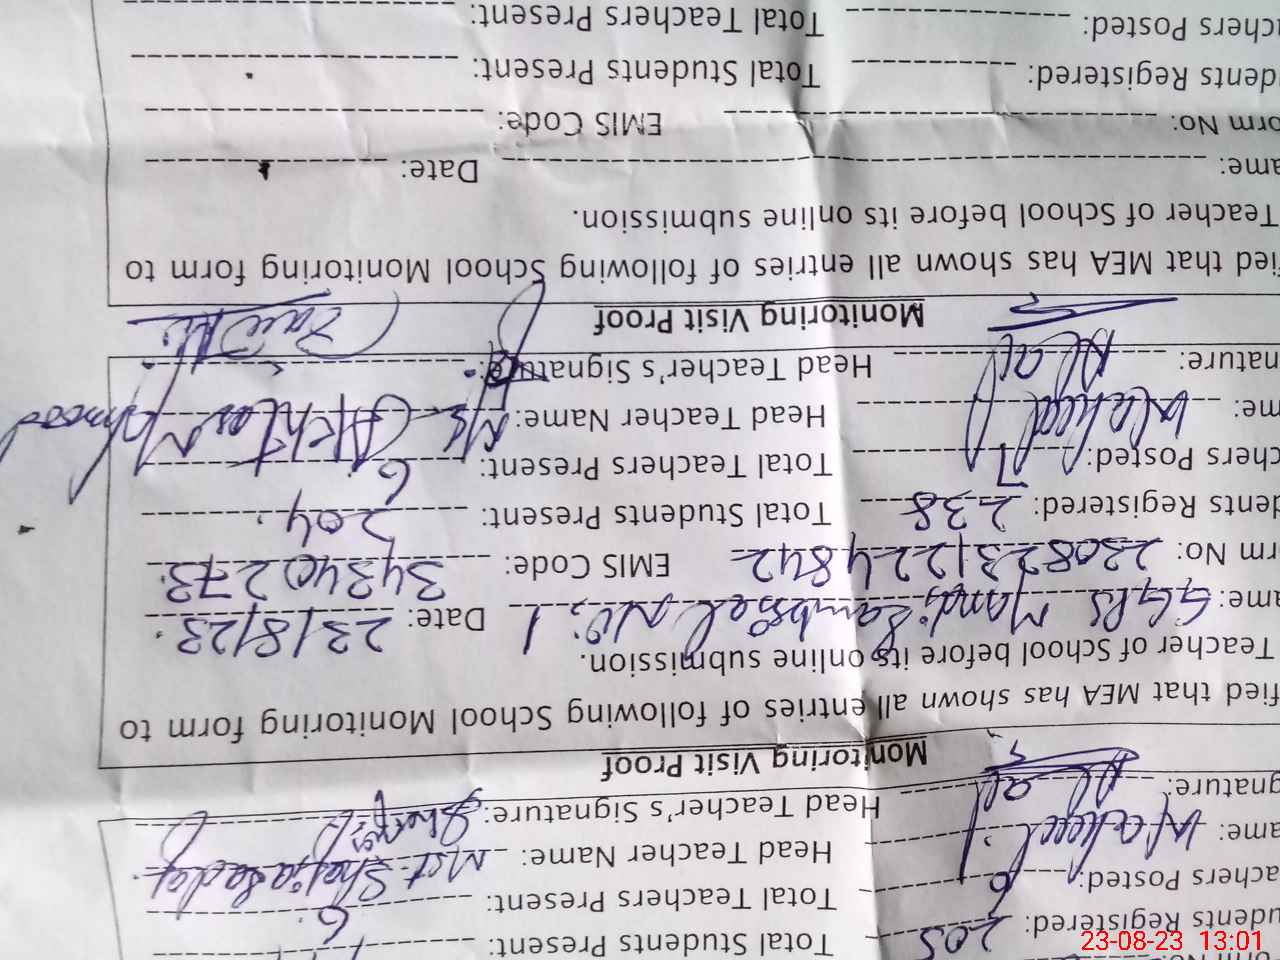 udents Registered: 205 Total Students Present:
eachers Posted: 6 Total Teachers Present: 6
ame: Waheed Head Teacher Name: Mst. Shazia Sadaf
gnature: Head Teacher's Signature:
Monitoring Visit Proof
fied that MEA has shown all entries of following School Monitoring form to
Teacher of School before its online submission.
ame: GGPS Mandi Sambsal No. 1 Date: 23/8/23
rm No: 2308231224842 EMIS Code: 34340273
dents Registered: 238 Total Students Present: 204
chers Posted: 7 Total Teachers Present: 6
me: Waheed Head Teacher Name: Ms Akhtar Mahmood
nature: Head Teacher's Signature:
Monitoring Visit Proof
fied that MEA has shown all entries of following School Monitoring form to
Teacher of School before its online submission.
ame: Date:
orm No: EMIS Code:
dents Registered: Total Students Present:
chers Posted: Total Teachers Present:
23-08-23 13:01